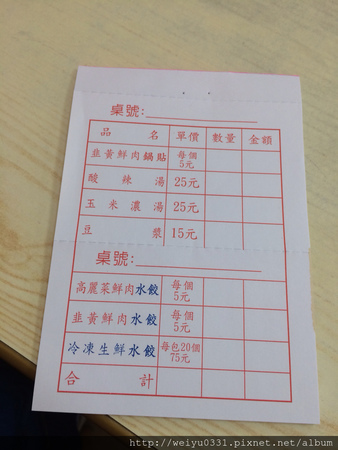 桌號:
品名 單價 數量 金額
韭黃鮮肉鍋貼 每個5元
酸辣湯 25元
玉米濃湯 25元
豆漿 15元
桌號:
高麗菜鮮肉水餃 每個5元
韭黃鮮肉水餃 每個5元
冷凍生鮮水餃 每包20個75元
合計
http://weiyu0331.pixnet.net/album